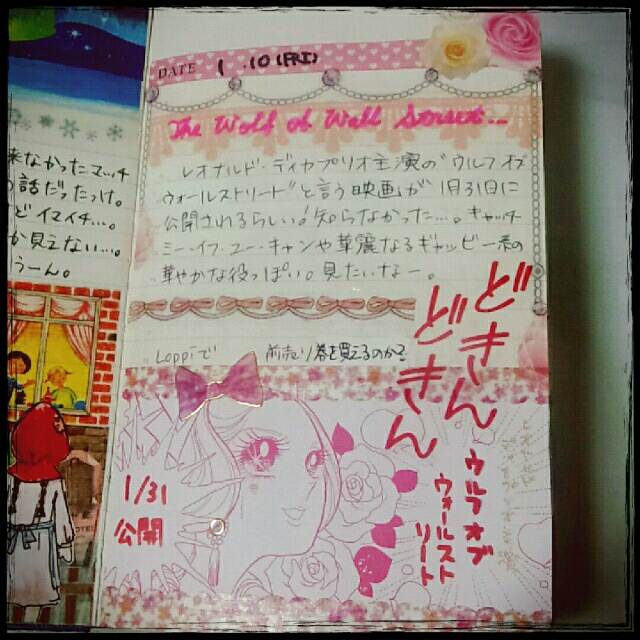 来なかったマッチ
の話だったっけ。
どイマイチ…。
か見えない…。
うーん。
DATE 1.10 (FRI)
The Wolf of Wall Street...
レオナルド・ディカプリオ主演の"ウルフ オブ
ウォールストリート"と言う映画が 1月31日に
公開されるらしい!知らなかった…。キャッチ
ミー・イフ・ユー・キャンや華麗なるギャッビー系の
華やかな役っぽい。見たいなー。
どきん
どきん
Loppiで 前売り券を買えるのか?
1/31
公開
ウルフ オブ
ウォールスト
リート